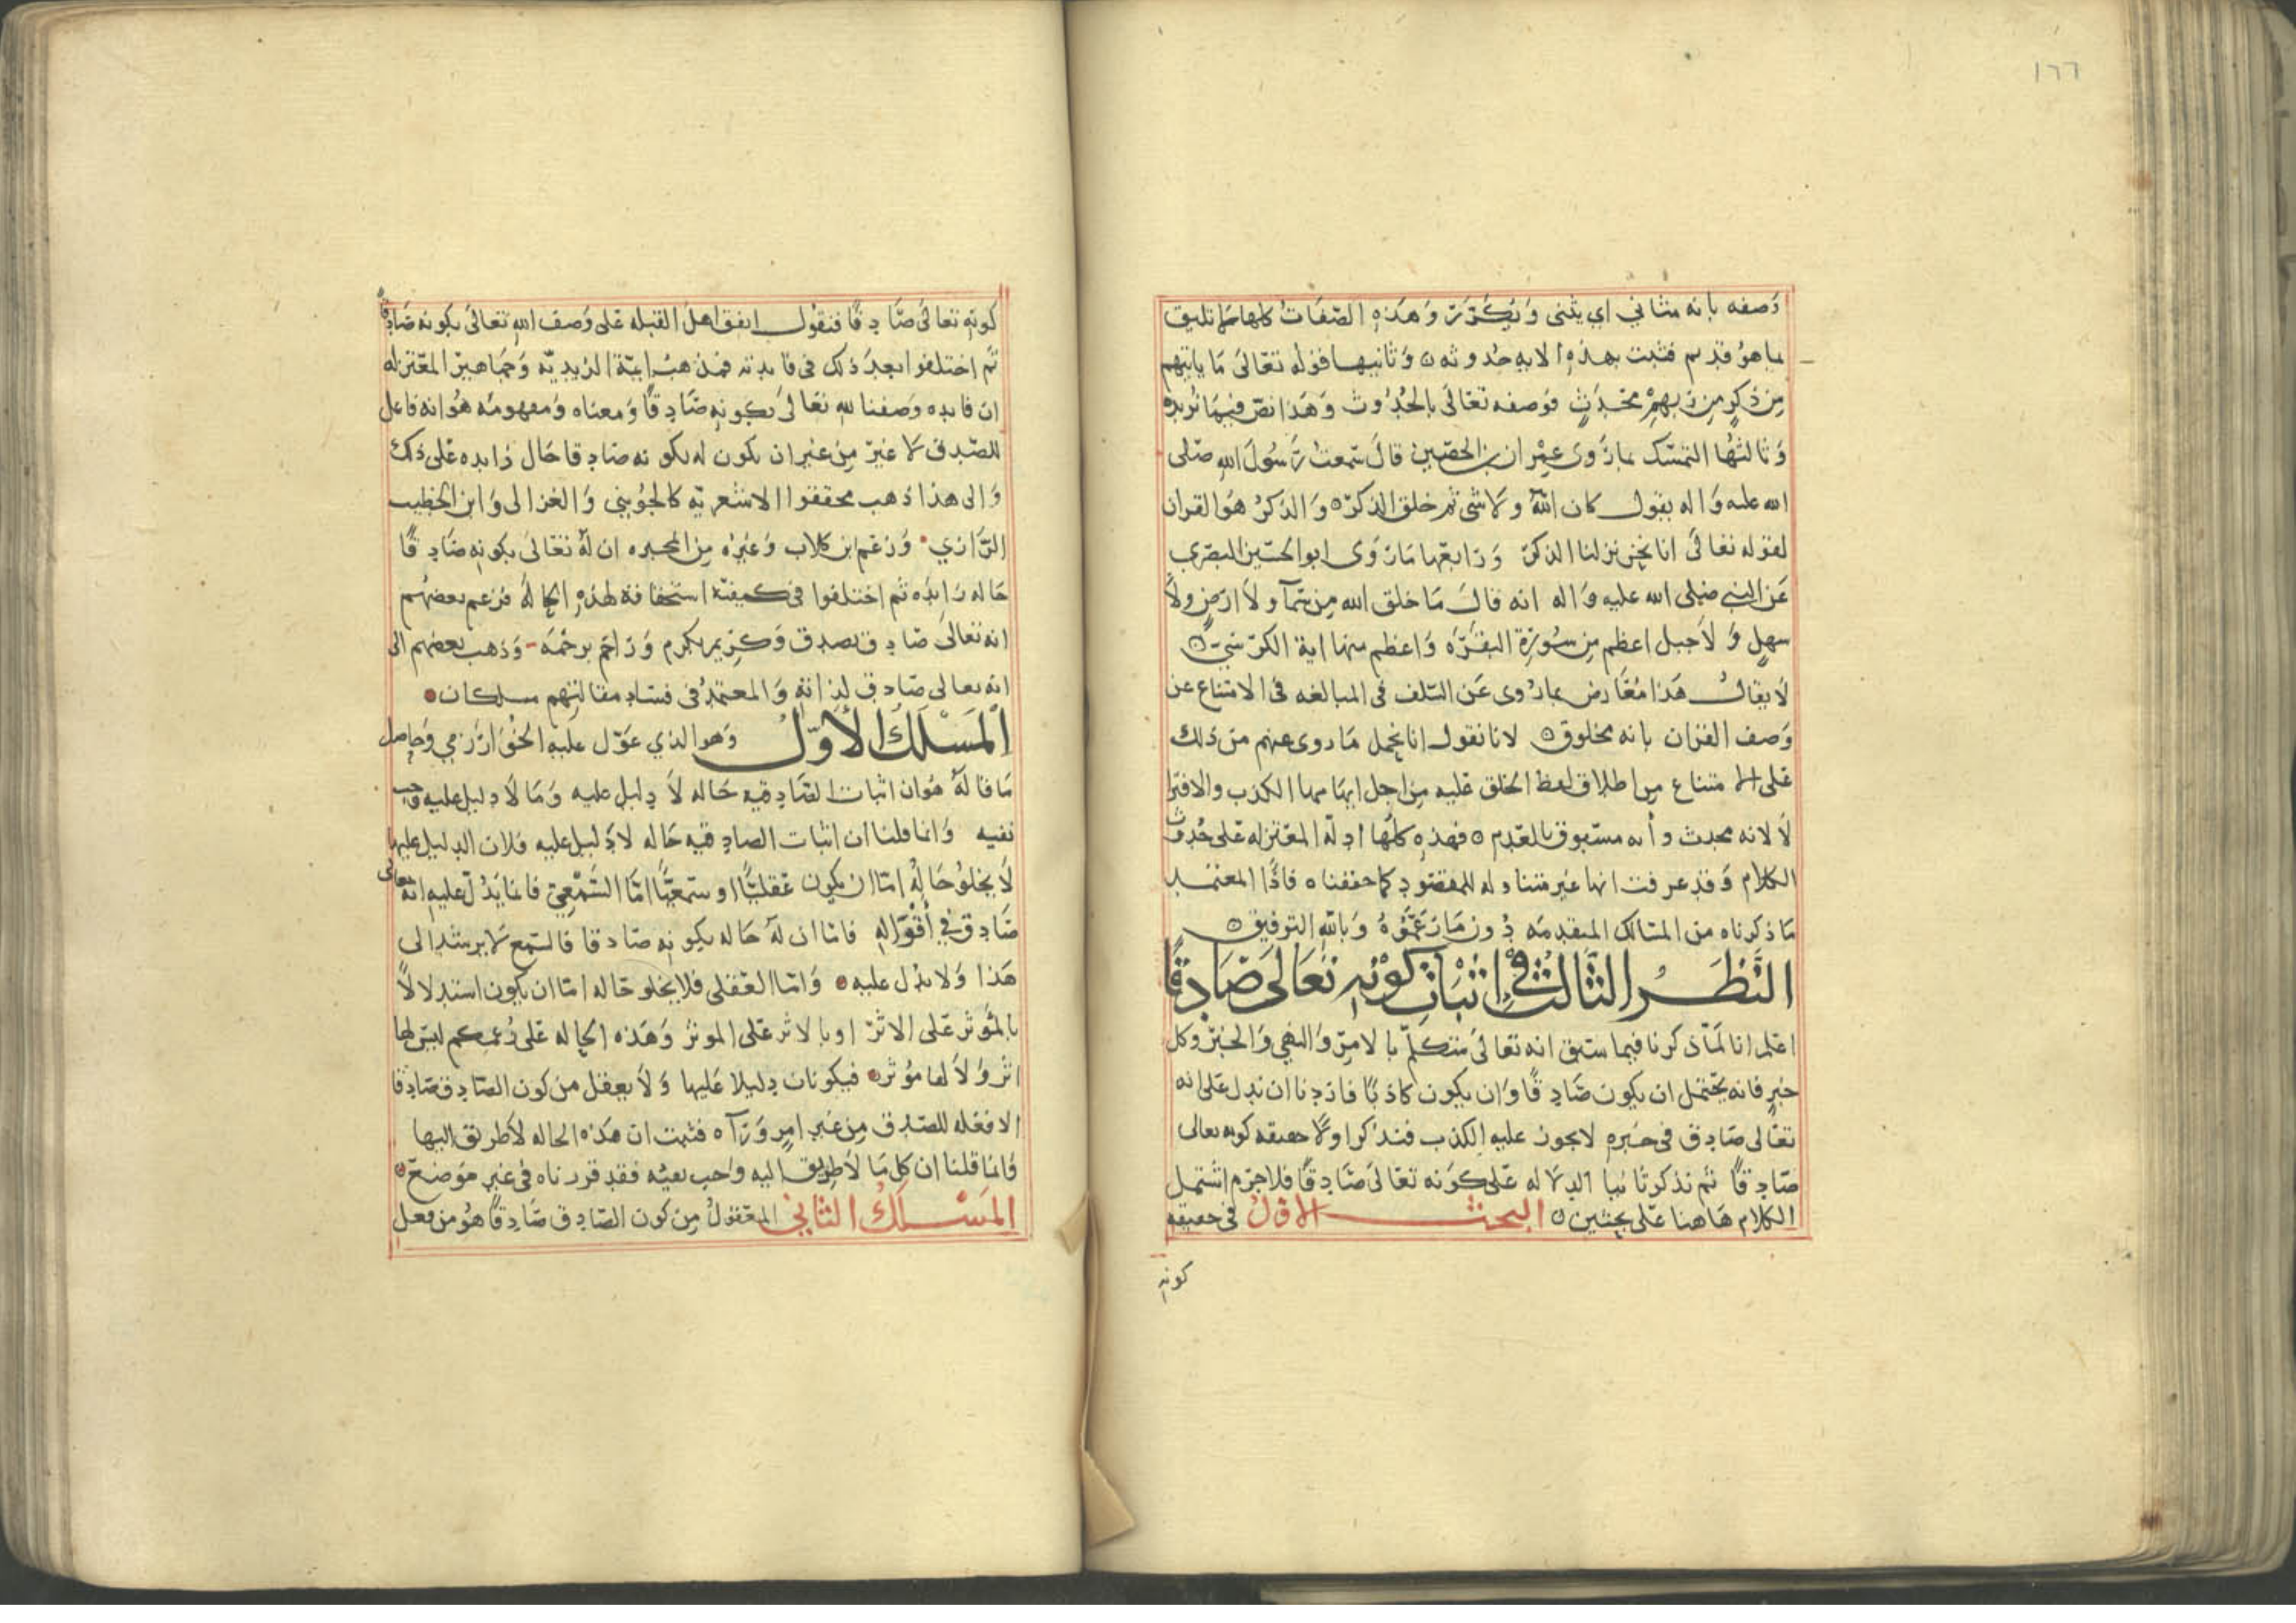 ١٦٦
وَصفه بانه مثاني اي يثنى وَيُكَرَّرَ وَهَذهِ الصّفَاتُ كلها مما تليق
بما هوُ قديم فثبت بهذهِ الايه حُدوثه ٥ وَثانيها قوله تعَالىَ مَا ياتيهم
مِن ذِكرٍ مِن رَبهمْ محُدَثٍ فوَصفه تعَالىَ بالحُدُوث وَهَذا نصّ فيمَا نُريده
وَثالثهُا التمسّك بمارَوى عِمْران بن الحصَين قالَ سَمعتُ رَسُولَ اللهِ صَلى
الله عليه وَاله يقول كان اللهُ ولا شي ثم خلق الذكرَ ٥ وَالذكرُ هوُالقران
لقوله تعالىَ انا نحن نزلنا الذكرَ وَرَابعَها مَارَوَى ابوالحسَين البصَري
عَن النبي صَلى الله عليه وَاله انه قالَ مَا خلق الله مِن سَمآ ولاَ ارضٍ ولاَ
سهلٍ وَلاَجبل اعظم مِن سُورَة البقرَه وَاعظم منها اية الكرسَي ٥
لاَيقالُ هَذا مُعَارض بما رُوى عَن السَلف في المبالغه في الامتناع عن
وَصف القران بانه مخلوق ٥ لانا نقول انا نحمل مَا روى عنهم من ذلك
عَلى الامتناع من اطلاق لفظ الخلق عَليه مِن اجل ايهَامها الكذب والافترا
لاَ لانه محدث وأنه مسَبوق بالعَدم ٥ فهذهِ كلهَا ادلة المعَتزله عَلى حُدوُث
الكلام وَقد عرفت انها غير متناوله للمقصُود كما حققنا ٥ فاذًا المعتمد
مَا ذكرناه من المسَالك المتقدمَه دُون مَازعَموُهُ وَبالله التوفيق ٥
النَّظَرُ الثَّالثُ فِي اثبَات كَوْنِهِ تَعَالىَ صَادِقًا
اعَلم انا لمَا ذكرنا فيما سَبق انه تعَالىَ متكلمَ بالامِر وَالنهَي وَالخبرَ وكل
خبرٍ فانه يحَتمَل ان يكون صَادِقًا وَان يكون كاذبًا فاردنا ان ندل عَلى انه
تعَالى صَادِق في خبَره لايجوز عليهِ الكذب فنذكراولاً حقيقه كونه تعالى
صَادِقًا ثم نذكر ثانيا الدلاله عَلى كوَنه تعَالىَ صَادِقًا فلاجرَم اشتمل
الكلام هَاهنا عَلى بحثين ٥ البحث الاوَّلُ في حقيقه
كونهِ
كونهِ تعالىَ صَادِقًا فنقوُل اتفق اهلَ القبله عَلى وَصف اللهِ تعَالىَ بكونه صَادِقًا
ثمَ اختلفوا بعدَ ذلك في فايدته فمذهبُ ايمّة الزيديّه وَجمَاهير المعَتزله
ان فايده وَصفنا لله تعَالىَ بكونهِ صَادِقًا وَمعناه وَمفهومَه هوُانه فاعل
للصّدق لا غير مِن غيران يكون له بكونه صادِقا حَال زايده عَلى ذلك
وَالى هذا ذهب محققواالاشعريه كالجوُيني وَالغزالى وَابن الخطيب
الرَّازي وَزعَم ابن كلاب وَغيرُه مِن المجبره ان لهُ تعَالىَ بكونهِ صَادِقًا
حَاله زايده ثم اختلفوا في كيفيّة استحقاقه لهذه الحالهُ فزعم بعضهُم
انه تعالىَ صَادِق بصدق وَكرِيم بكرم وَراحم برحمَه وَذهب بعضهم الى
انه تعالى صَادِق لذاتهِ وَالمعتمدُ في فساد مقالتهم مسلكان
المَسْلَكُ الأوَّلُ وَهوالذي عَوّل عليه الخوُارَزمي وَحاصِل
مَاقالهُ هوُان اثبات الصّادِقيه حَاله لاَ دِليل عليه وَمَالاَ دليل عليه وَجب
نفيه وَانما قلنا ان اثبات الصادِقيه حَاله لادَليل عليه فلان الدليل عليها
لاَيخلوُ حَالهُ امّا ان يكون عَقليًّا او سَمعيًّا امّا السَّمعِيّ فانما يَدُلّ عليهِ انهُ تعالى
صَادِق في أقوَالهِ فامّا ان لهُ حَاله بكونهِ صَادقا فالسّمع لا يرشدالى
هَذا وَلايدُل عليه وَامّا العَقلي فلايخلو حَاله امّاان يكون استدلالاً
بالمُؤثر عَلى الاثرَ اوبالاثر عَلى الموثر وَهَذه الحاله عَلى زعَمكم ليسَ لها
اثر وَلاَ لها مؤثر فيكونان دِليلا عَليها وَلاَيعقل من كون الصّادِق صَادِقا
الا فعَله للصّدِق مِن غير امرٍ وَرَآه فثبت ان هَذه الحاله لاَطريق اليها
وَانما قلنا ان كلَ مَا لاَطريق اليه وَاجب نفيُه فقد قررناه في غير مَوضعَ
المَسْلَكُ الثاني المعَقولُ مِن كون الصّادِق صَادِقًا هوُ من فعل